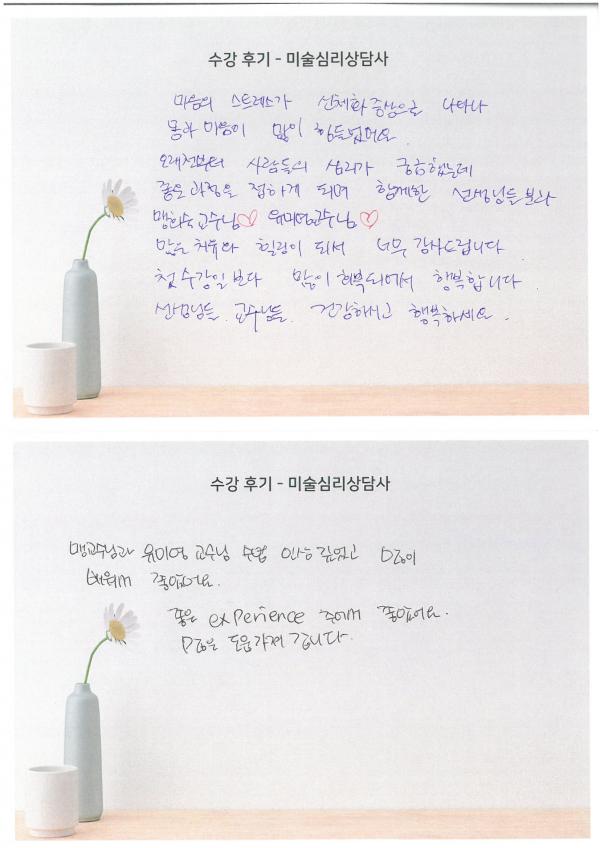 수강 후기 - 미술심리상담사
마음의 스트레스가 신체화 증상으로 나타나
몸과 마음이 많이 힘들었어요
오래전부터 사람들의 심리가 궁금했는데
좋은 과정을 접하게 되며 함께한 선생님들분과
맹희숙교수님♡ 유미영교수님♡
많은 치유와 힐링이 되서 너무 감사드립니다
첫 수강일보다 많이 회복되어서 행복합니다
선생님들. 교수님들. 건강하시고 행복하세요.
수강 후기 - 미술심리상담사
맹교수님과 유미영 교수님 수업 인상 깊었고 많이
배워서 좋았어요.
좋은 experience 주어서 좋았어요.
많은 도움가져 갑니다.